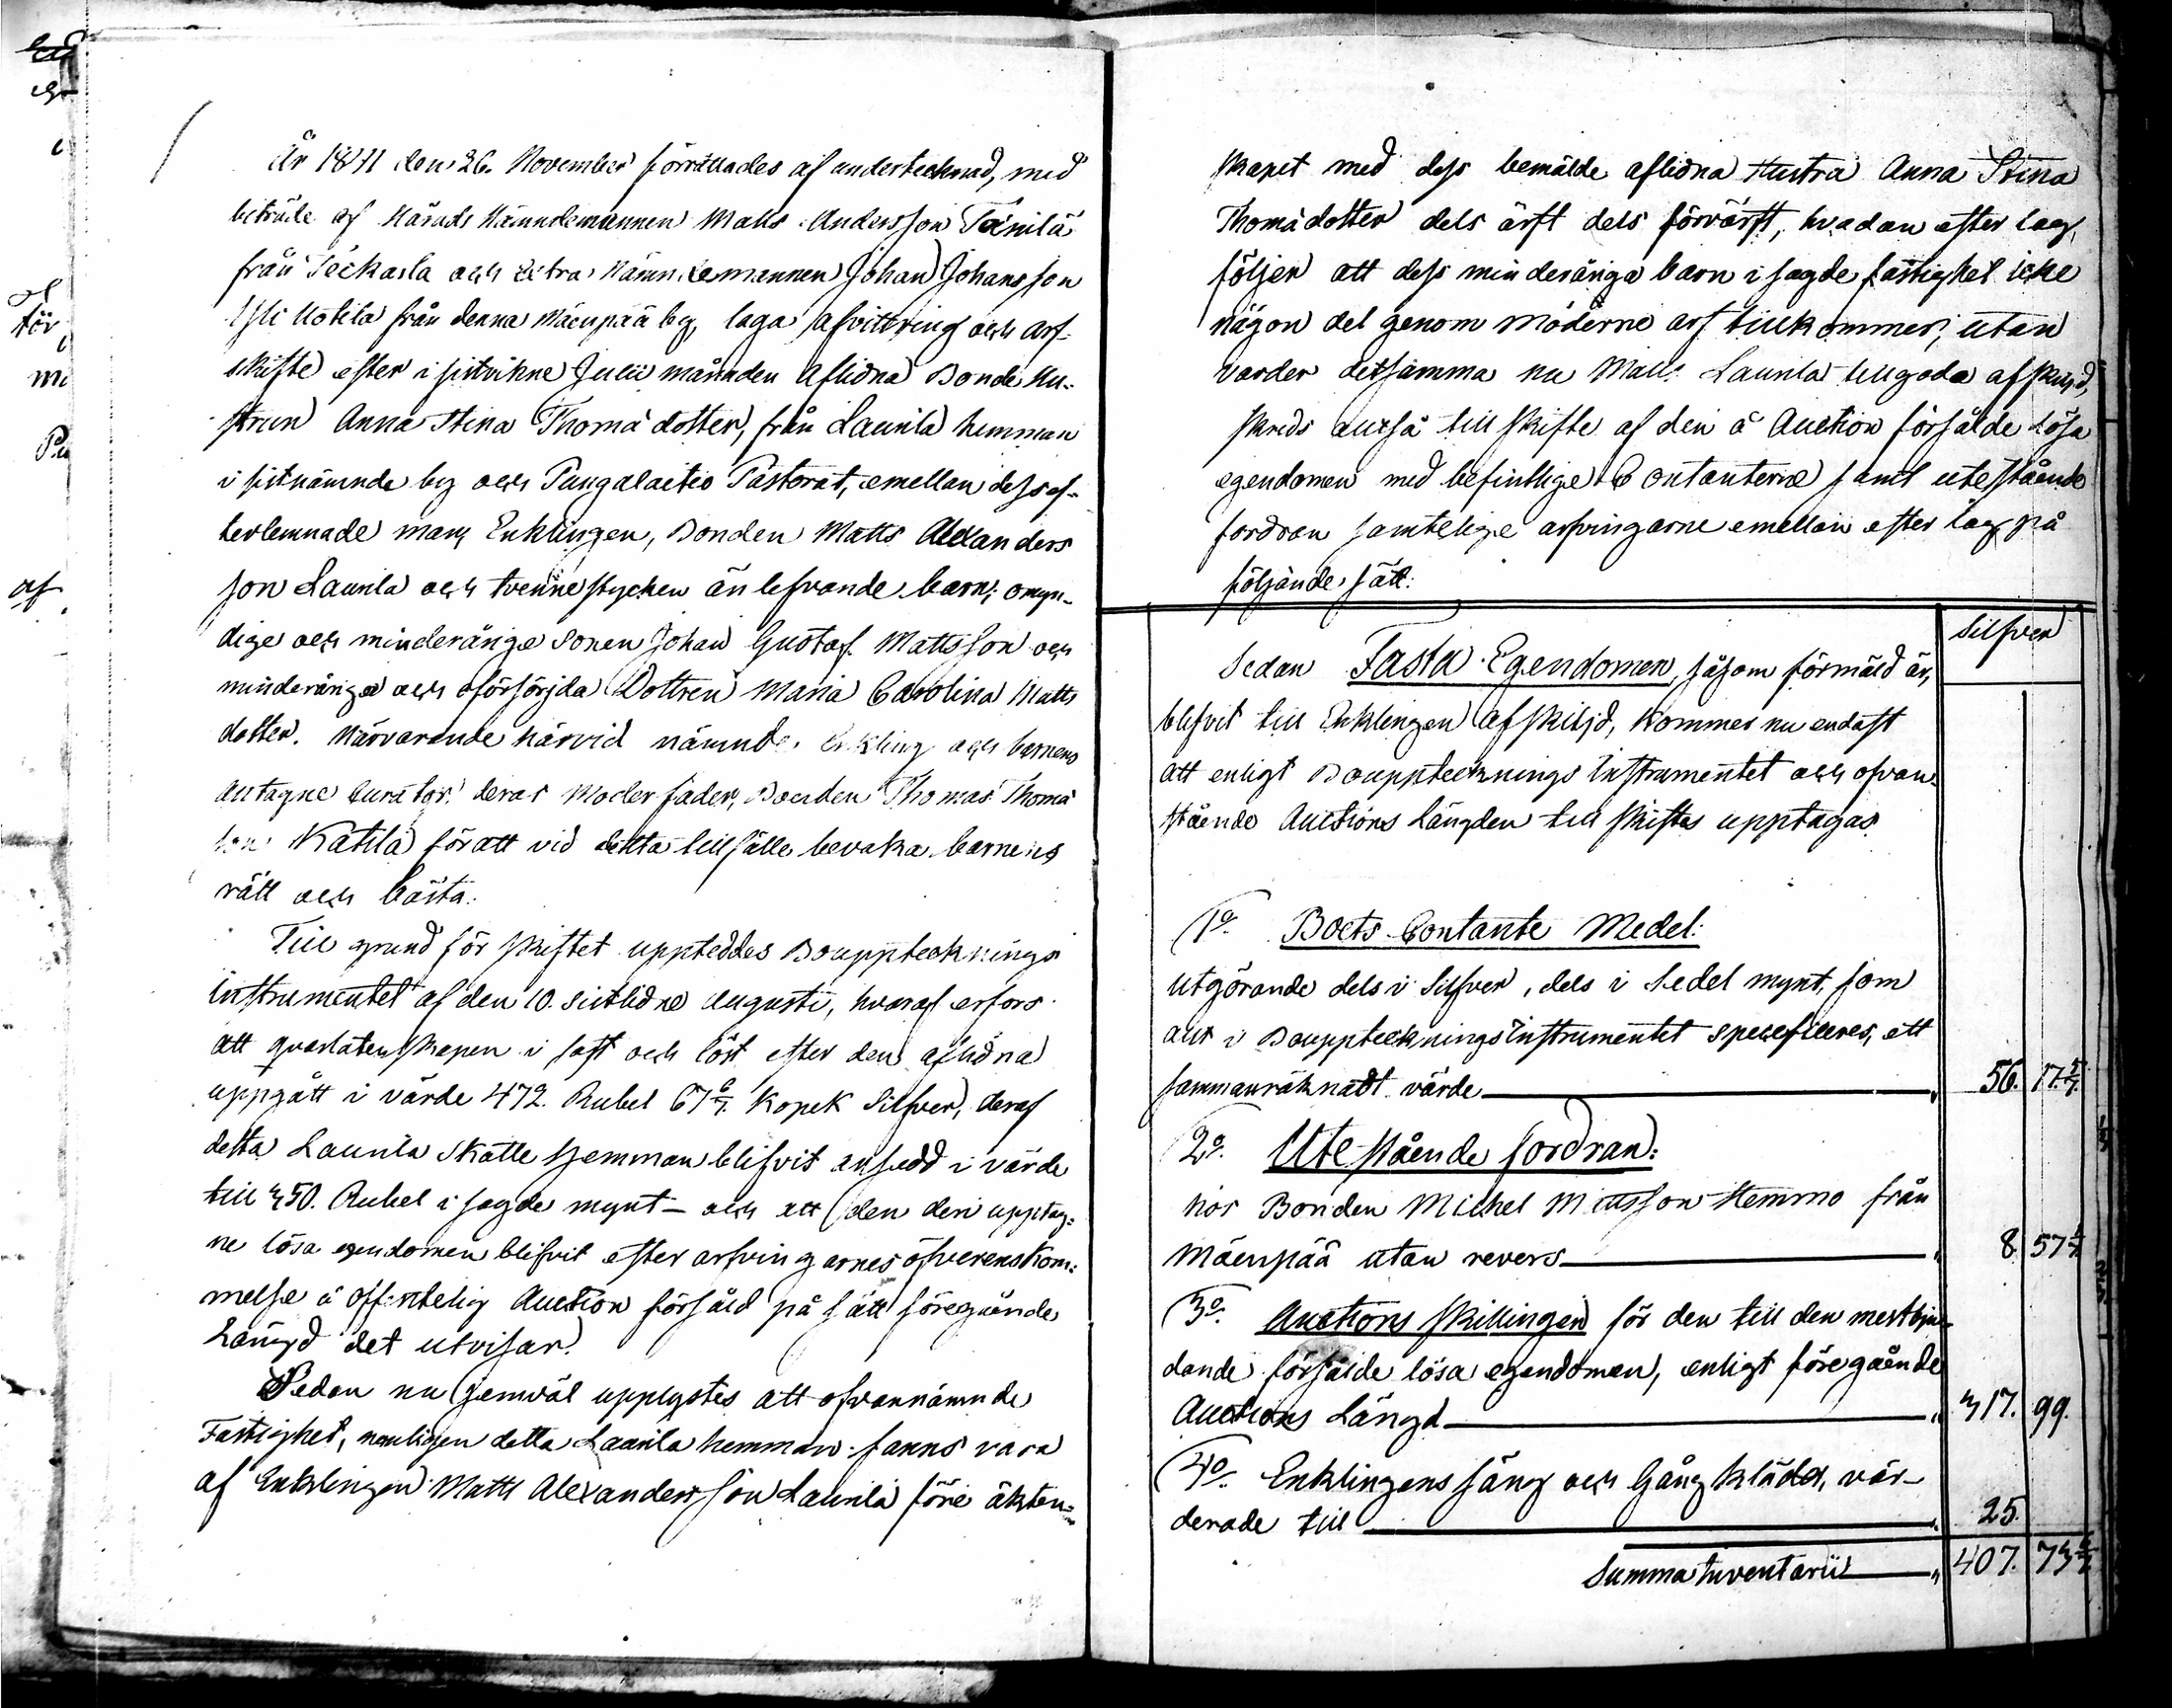 År 1841 den 26. November förrättades af undertecknad, med
biträde af Härads Nämndemannen Matts Andersson Tanila
från Teckaila och Extra Nämndemannen Johan Johansson
Uotila från denna Mäenpää by, laga afvittring och arf-
skifte efter i sistvikne Julii månaden Aflidna Bonde Hu-
strun Anna Stina Thomadotter, från Launila hemman
i sistnämnde by och Pungalaitio Pastorat, emellan dess ef-
terlemnade man, Enklingen, Bonden Matts Alexanders
son Launila och tvenne stycken än lefvande barn; omyn-
dige och minderårige Sonen Johan Gustaf Mattsson och
minderåriga och oförsörjda Dottren Maria Carolina Matts
dotter. Närvarande härvid nämnde Enkling och barnens
antagne Curator deras Moderfader, Bonden Thomas Thoma
son Katila för att vid detta tillfälle bevaka barnens
rätt och bästa.
Till grund för skiftet uppteddes Bouppteknings
instrumentet af den 10. sistlidne Augusti, hvaraf erfors
att qvarlåtenskapen i fast och löst efter den aflidna
uppgått i värde 472. Rubel 67 6/7 Kopek Silfver, deraf
detta Launila Skatte Hemman blifvit ansedd i värde
till 50. Rubel i sagde mynt – och att den deri upptag-
ne lösa egendomen blifvit efter arfvingarnes öfverenskom-
melse å offentelig Auction försåld på sätt föregående
Längd det utvisar.
Sedan nu jemväl upplystes att ofvannämnde
Fastighet, nemligen detta Launila hemman fanns vara
af Enklingen Matts Alexandersson Launila före äkten-
skapet med dess bemälde aflidna Hustru Anna Stina
Thomädotter dels ärft dels förvärft, hvadan efter lag
följer att dess minderåriga barn i sagde fastighet icke
någon del genom Möderne arf tillkommer, utan
varder detsamma nu Matts Launila tillgodo afskiljd,
skreds altså till skifte af den å Auction försålde lösa
egendomen med befintlige Contanterne samt utestående
fordran samtelige arfvingarne emellan efter lag på
följande sätt:
Silfver
Sedan Fasta Egendomen, såsom förmäld är,
blifvit till Enklingen afskiljd, kommer nu endast
att enligt Bouppteknings Instrumentet och ofvan-
stående Auctions Längden till skiftes upptagas.
1o. Boets Contante Medel:
utgörande dels i Silfver, dels i Sedel mynt, som
allt i Boupptekningsinstrumentet specificeres, ett
sammanräknadt värde — 56. 17 5/7.
2o. Utestående fordran:
hos Bonden Michel Mattsson Hemmo från
Mäenpää utan revers — 8. 57 1/7.
3o. Auctions skillingen för den till den mestbju-
dande försålde lösa egendomen, enligt föregående
Auctions Längd — 317. 99.
4o. Enklingens säng och Gång kläder, vär-
derade till — 25.
Summa Inventarii — 407. 73 6/7.